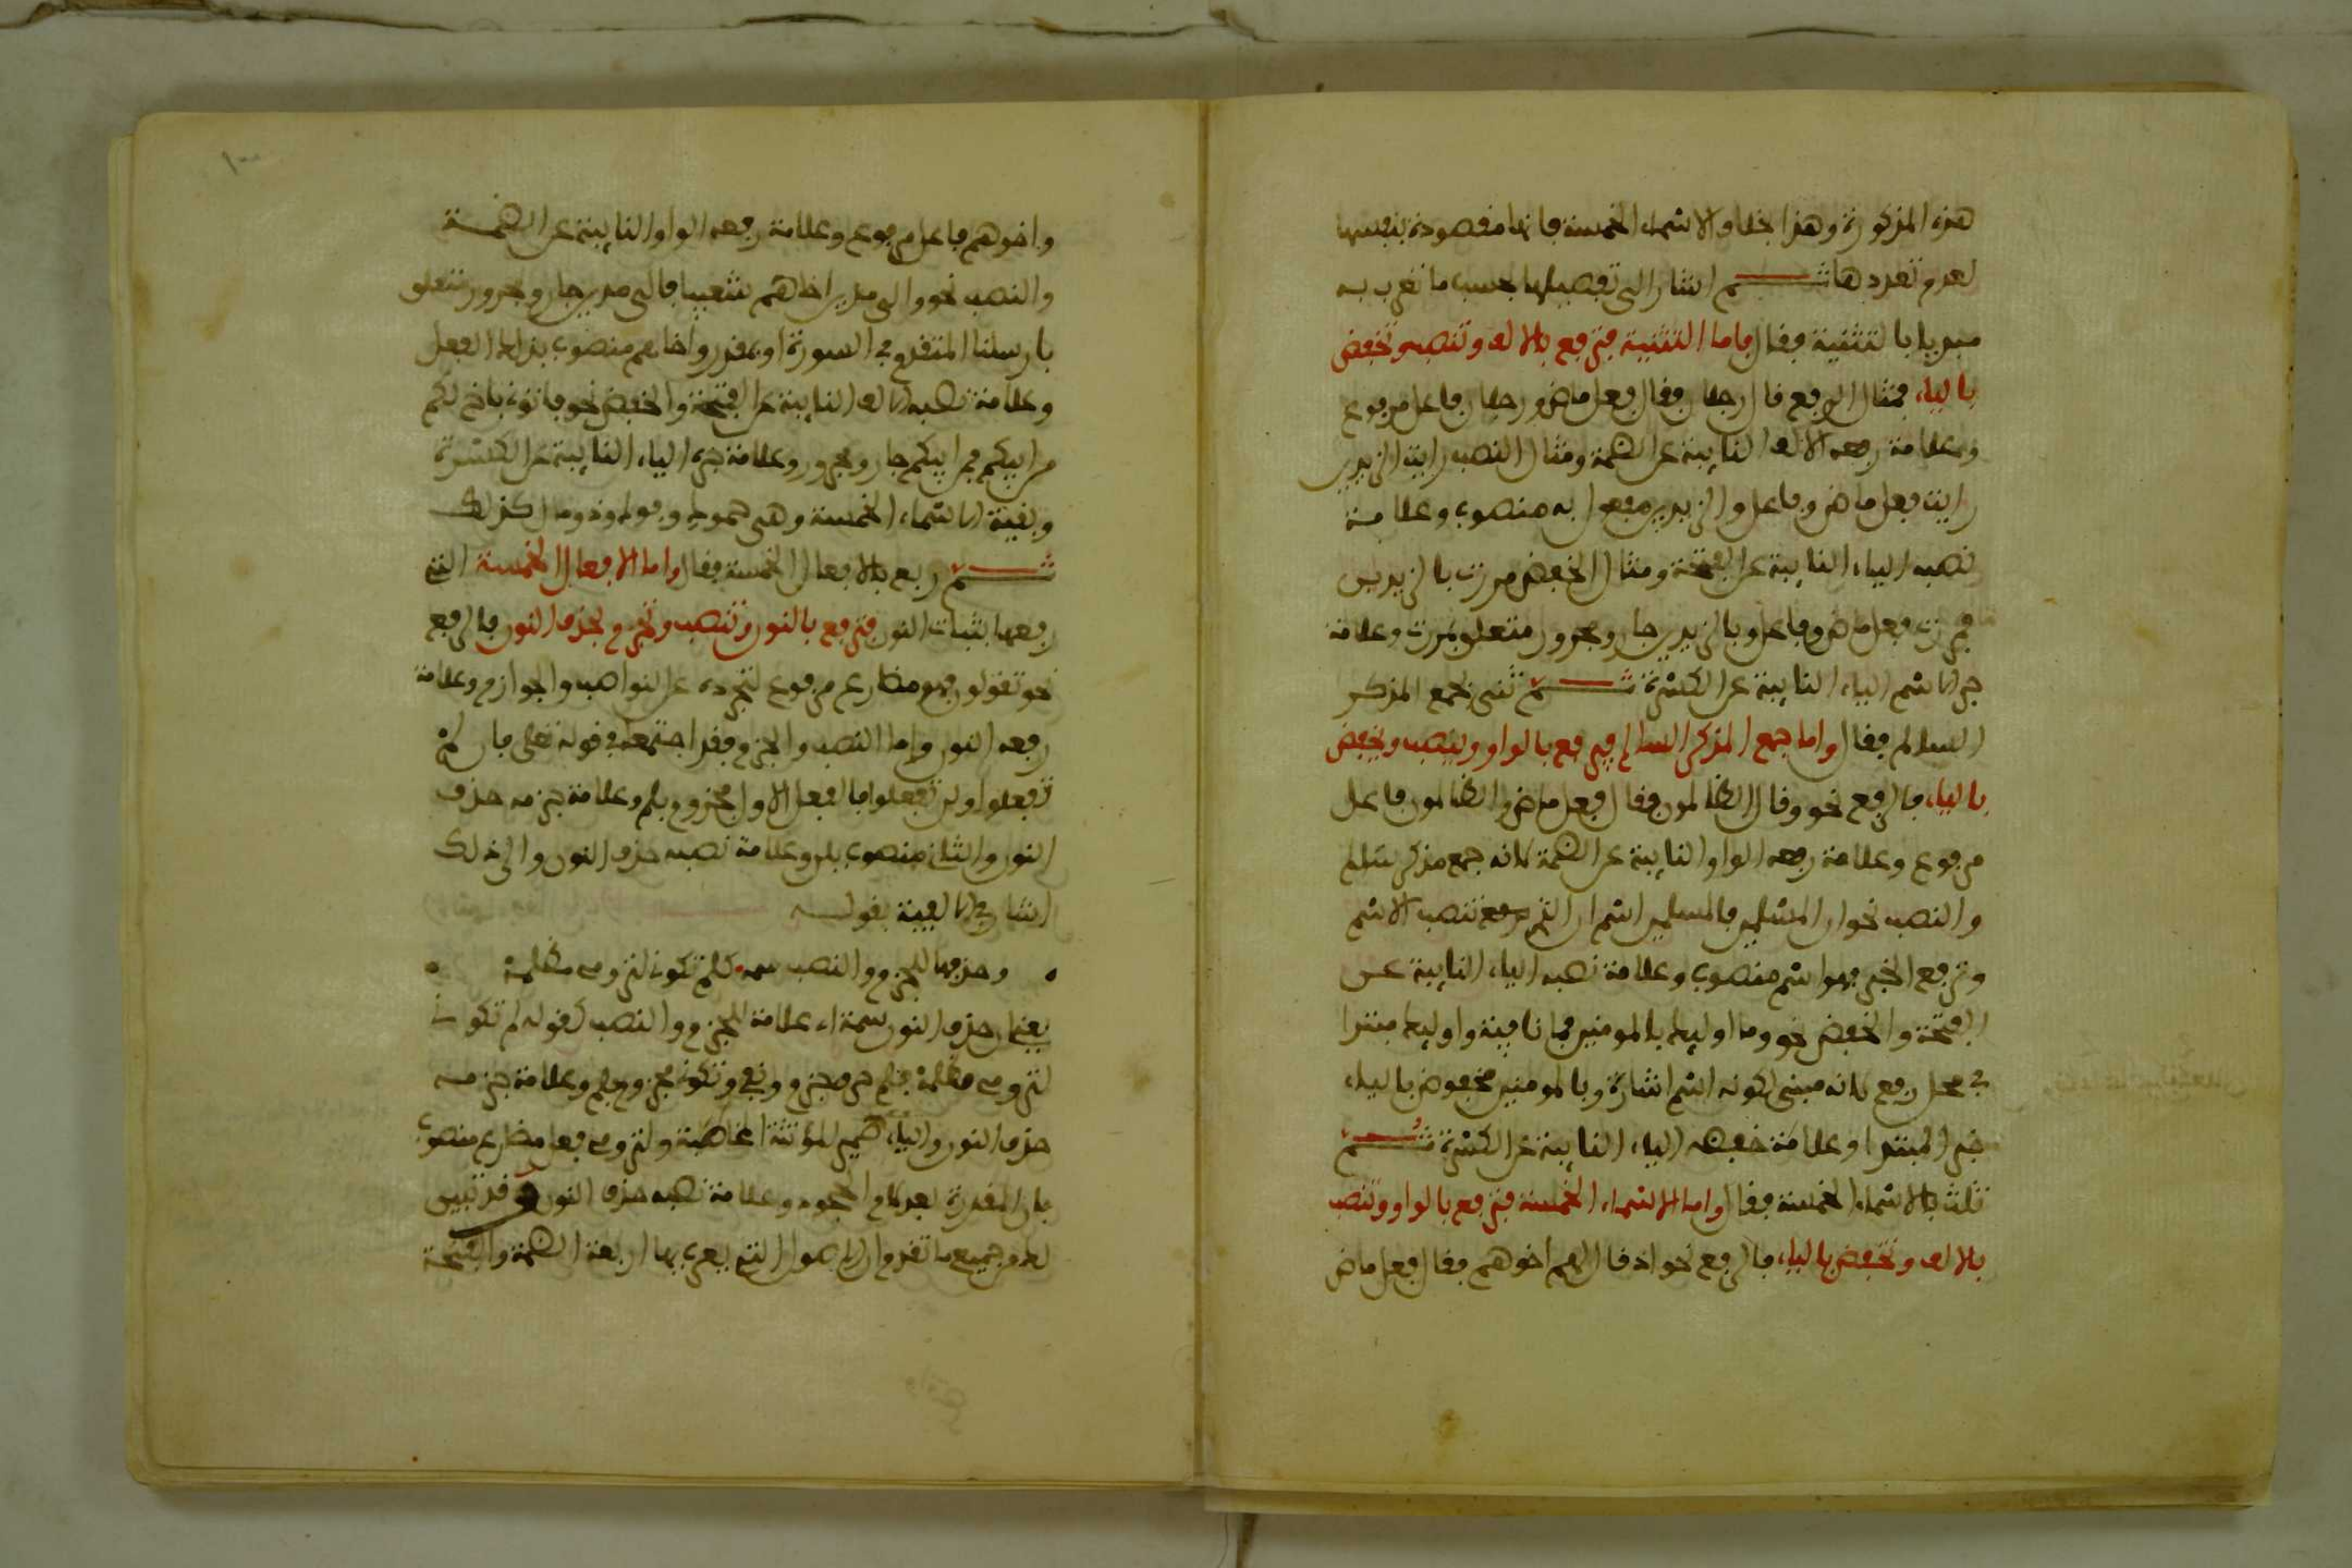 هذه المذكورة وهذا بخلاف الاسماء الخمسة فانها مقصودة بنفسها
لعدم تعددها ثم اشار الى تفصيلها بحسب ما تعرب به
مبديا بالتثنية فقال فاما التثنية فترفع بالالف وتنصب وتخفض
بالياء فمثال الرفع قال رجلان فقال فعل ماض ورجلان فاعل مرفوع
وعلامة رفعه الالف النايبة عن الضمة ومثال النصب رايت الزيدين
رايت فعل ماض وفاعل والزيدين مفعول به منصوب وعلامة
نصبه الياء النايبة عن الفتحة ومثال الخفض مررت بالزيدين
فمررت فعل ماض وفاعل وبالزيدين جار ومجرور متعلق بمررت وعلامة
جر الاسم الياء النايبة عن الكسرة ثم ثنى بجمع المذكر
السالم فقال واما جمع المذكر السالم فيرفع بالواو وينصب ويخفض
بالياء فالرفع نحو وقال الظالمون فقال فعل ماض والظالمون فاعل
مرفوع وعلامة رفعه الواو النايبة عن الضمة لانه جمع مذكر سالم
والنصب نحو ان المسلمين فالمسلمين اسم ان التي تنصب الاسم
وترفع الخبر فهو اسم منصوب وعلامة نصبه الياء النايبة عن
الفتحة والخفض نحو وما اوليك بالمومنين فما نافية واوليك مبتدا
في محل رفع لانه مبني لكونه اسم اشارة وبالمومنين مخفوض بالياء
خبر المبتدا وعلامة خفضه الياء النايبة عن الكسرة ثم
ثلث بالاسماء الخمسة فقال واما الاسماء الخمسة فترفع بالواو وتنصب
بالالف وتخفض بالياء فالرفع نحو اذ قال لهم اخوهم فقال فعل ماض
واخوهم فاعل مرفوع وعلامة رفعه الواو النايبة عن الضمة
والنصب نحو والى مدين اخاهم شعيبا فالى مدين جار ومجرور متعلق
بارسلنا المتقدم في السورة او بمقدر واخاهم منصوب بذلك الفعل
وعلامة نصبه الالف النايبة عن الفتحة والخفض نحو فاتوني باخ لكم
من ابيكم فمن ابيكم جار ومجرور وعلامة جره الياء النايبة عن الكسرة
وبقية الاسماء الخمسة وهى حموك وفوك وذو مال كذلك
ثم ربع بالافعال الخمسة فقال واما الافعال الخمسة التي
رفعها بثبات النون فترفع بالنون وتنصب وتجزم بحذف النون فالرفع
نحو تقولون فهو مضارع مرفوع لتجرده عن النواصب والجوازم وعلامة
رفعه النون واما النصب والجزم فقد اجتمعا في قوله تعلى فان لم
تفعلوا ولن تفعلوا فالفعل الاول مجزوم بلم وعلامة جزمه حذف
النون والثاني منصوب بلن وعلامة نصبه حذف النون والى ذلك
اشار في الالفية بقوله
وحذفها للجزم والنصب سمه كلم تكوني لترومي مظلمة
يعني ان حذف النون سمة اي علامة للجزم والنصب كقوله لم تكوني
لترومي مظلمة فلم حرف جزم ونفي وتكوني مجزوم بلم وعلامة جزمه
حذف النون والياء ضمير المؤنثة المخاطبة ولترومي فعل مضارع منصوب
بان المقدرة بعد لام الجحود وعلامة نصبه حذف النون وقد تبين
لك من جميع ما تقدم ان الاصول التي يعرب بها اربعة الضمة والفتحة